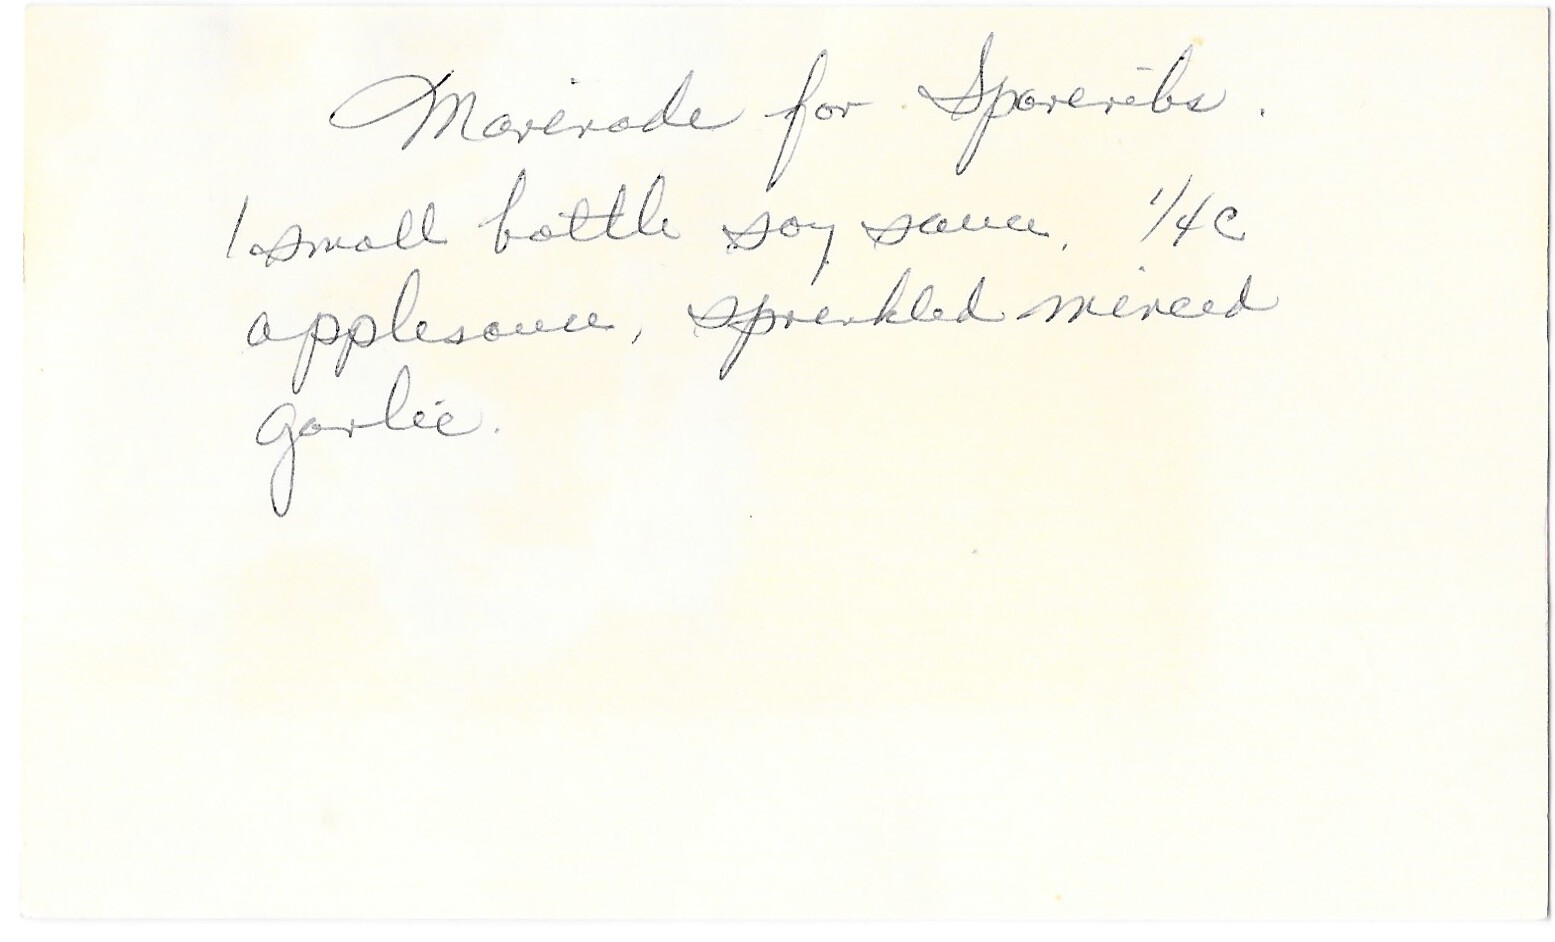 Marinade for Spareribs.
1 small bottle soy sauce, 1/4 c
applesauce, sprinkled minced
garlic.